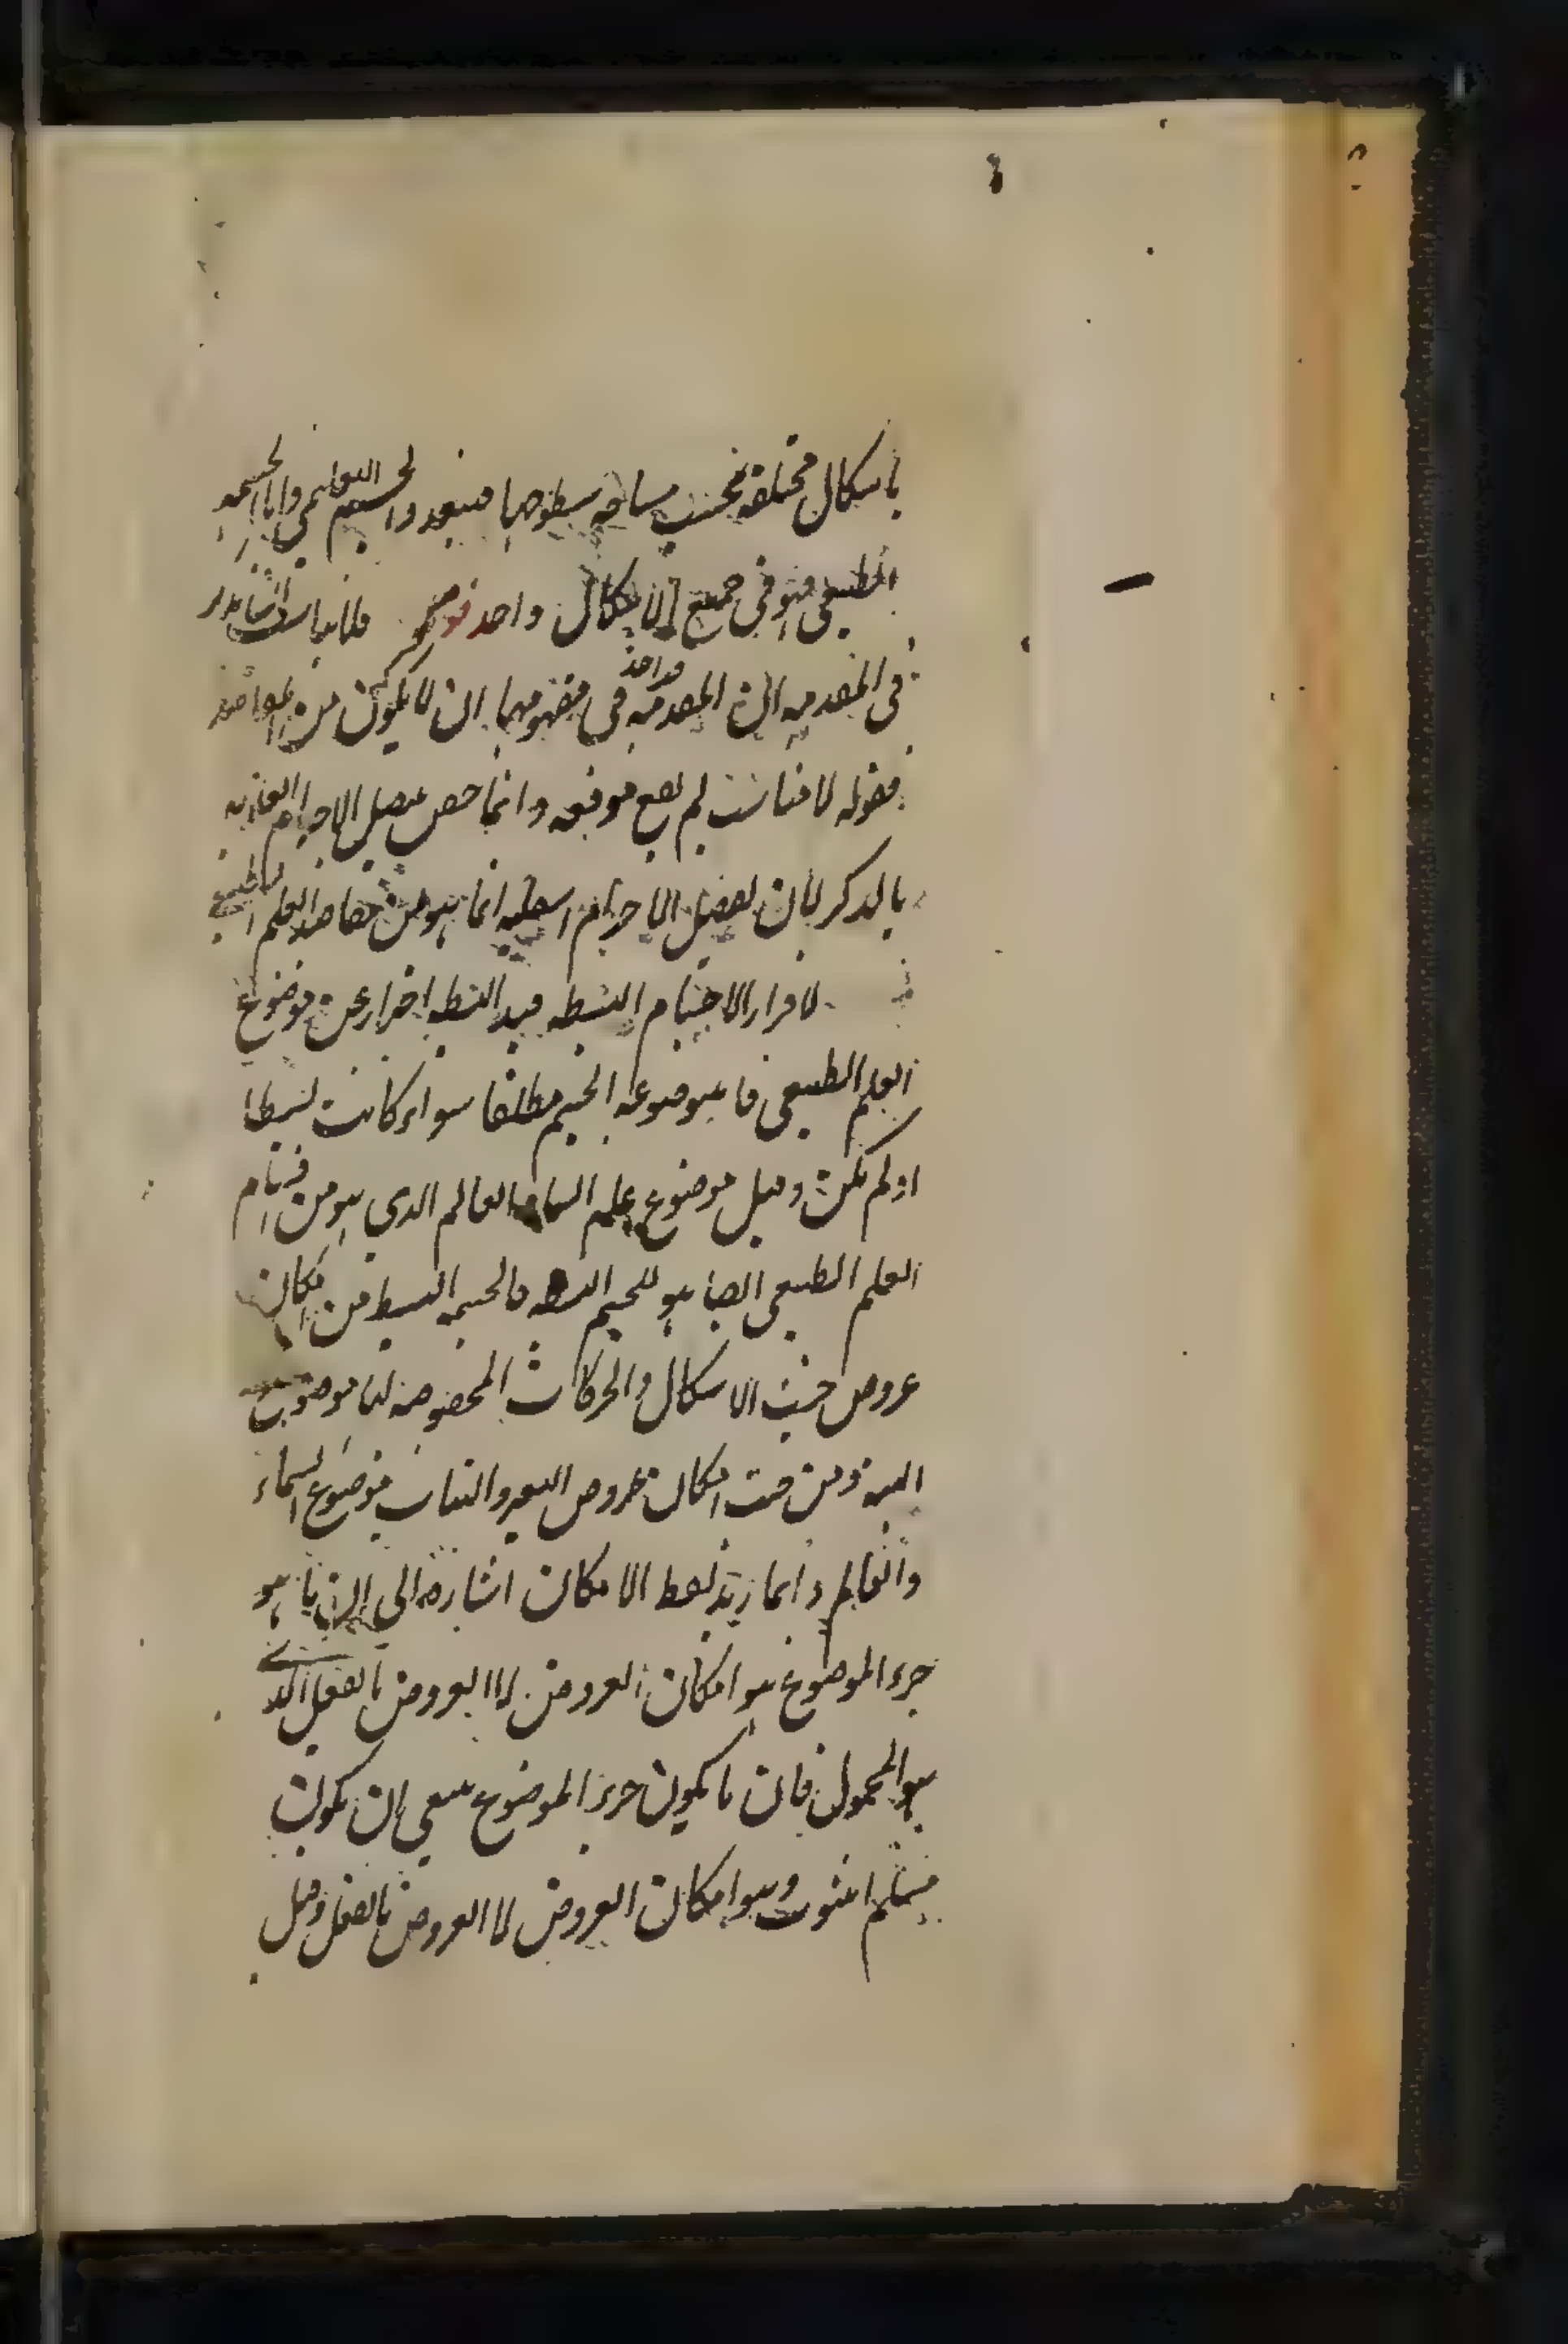 باشكال مختلفة بحسب مساحة سطوحها فيتعدد الجسم التعليمي واما الجسم
الطبيعي فهو في جميع الاشكال واحد قوله
في المقدمة ان المقدمة قد اخذ في مفهومها ان لا يكون من المقاصد
فقوله لا مناسب لم يقع موقعه وانما خص بتفصيل الاجرام
بالذكر لان تفصيل الاجرام السفلية انما هو من مقاصد العلم الطبيعي
الاجسام البسيطة قيد البسيطة احتراز عن موضوع
العلم الطبيعي فانه موضوعه الجسم مطلقا سواء كانت بسيطا
او لم يكن وقيل موضوع علم السماء والعالم الذي هو من اقسام
العلم الطبيعي ايضا هو الجسم البسيط فالجسم البسيط من امكان
عروض حيث الاشكال والحركات المخصوصة لها موضوع
الهيئة ومن حيث امكان عروض التغير والثبات موضوع السماء
والعالم وانما زيد لفظ الامكان اشارة الى ان ما هو
جزء الموضوع هو امكان العروض لا العروض بالفعل الذي
هو المحمول فان ما يكون جزء الموضوع ينبغي ان يكون
مسلم الثبوت وهو امكان العروض لا العروض بالفعل وقيل